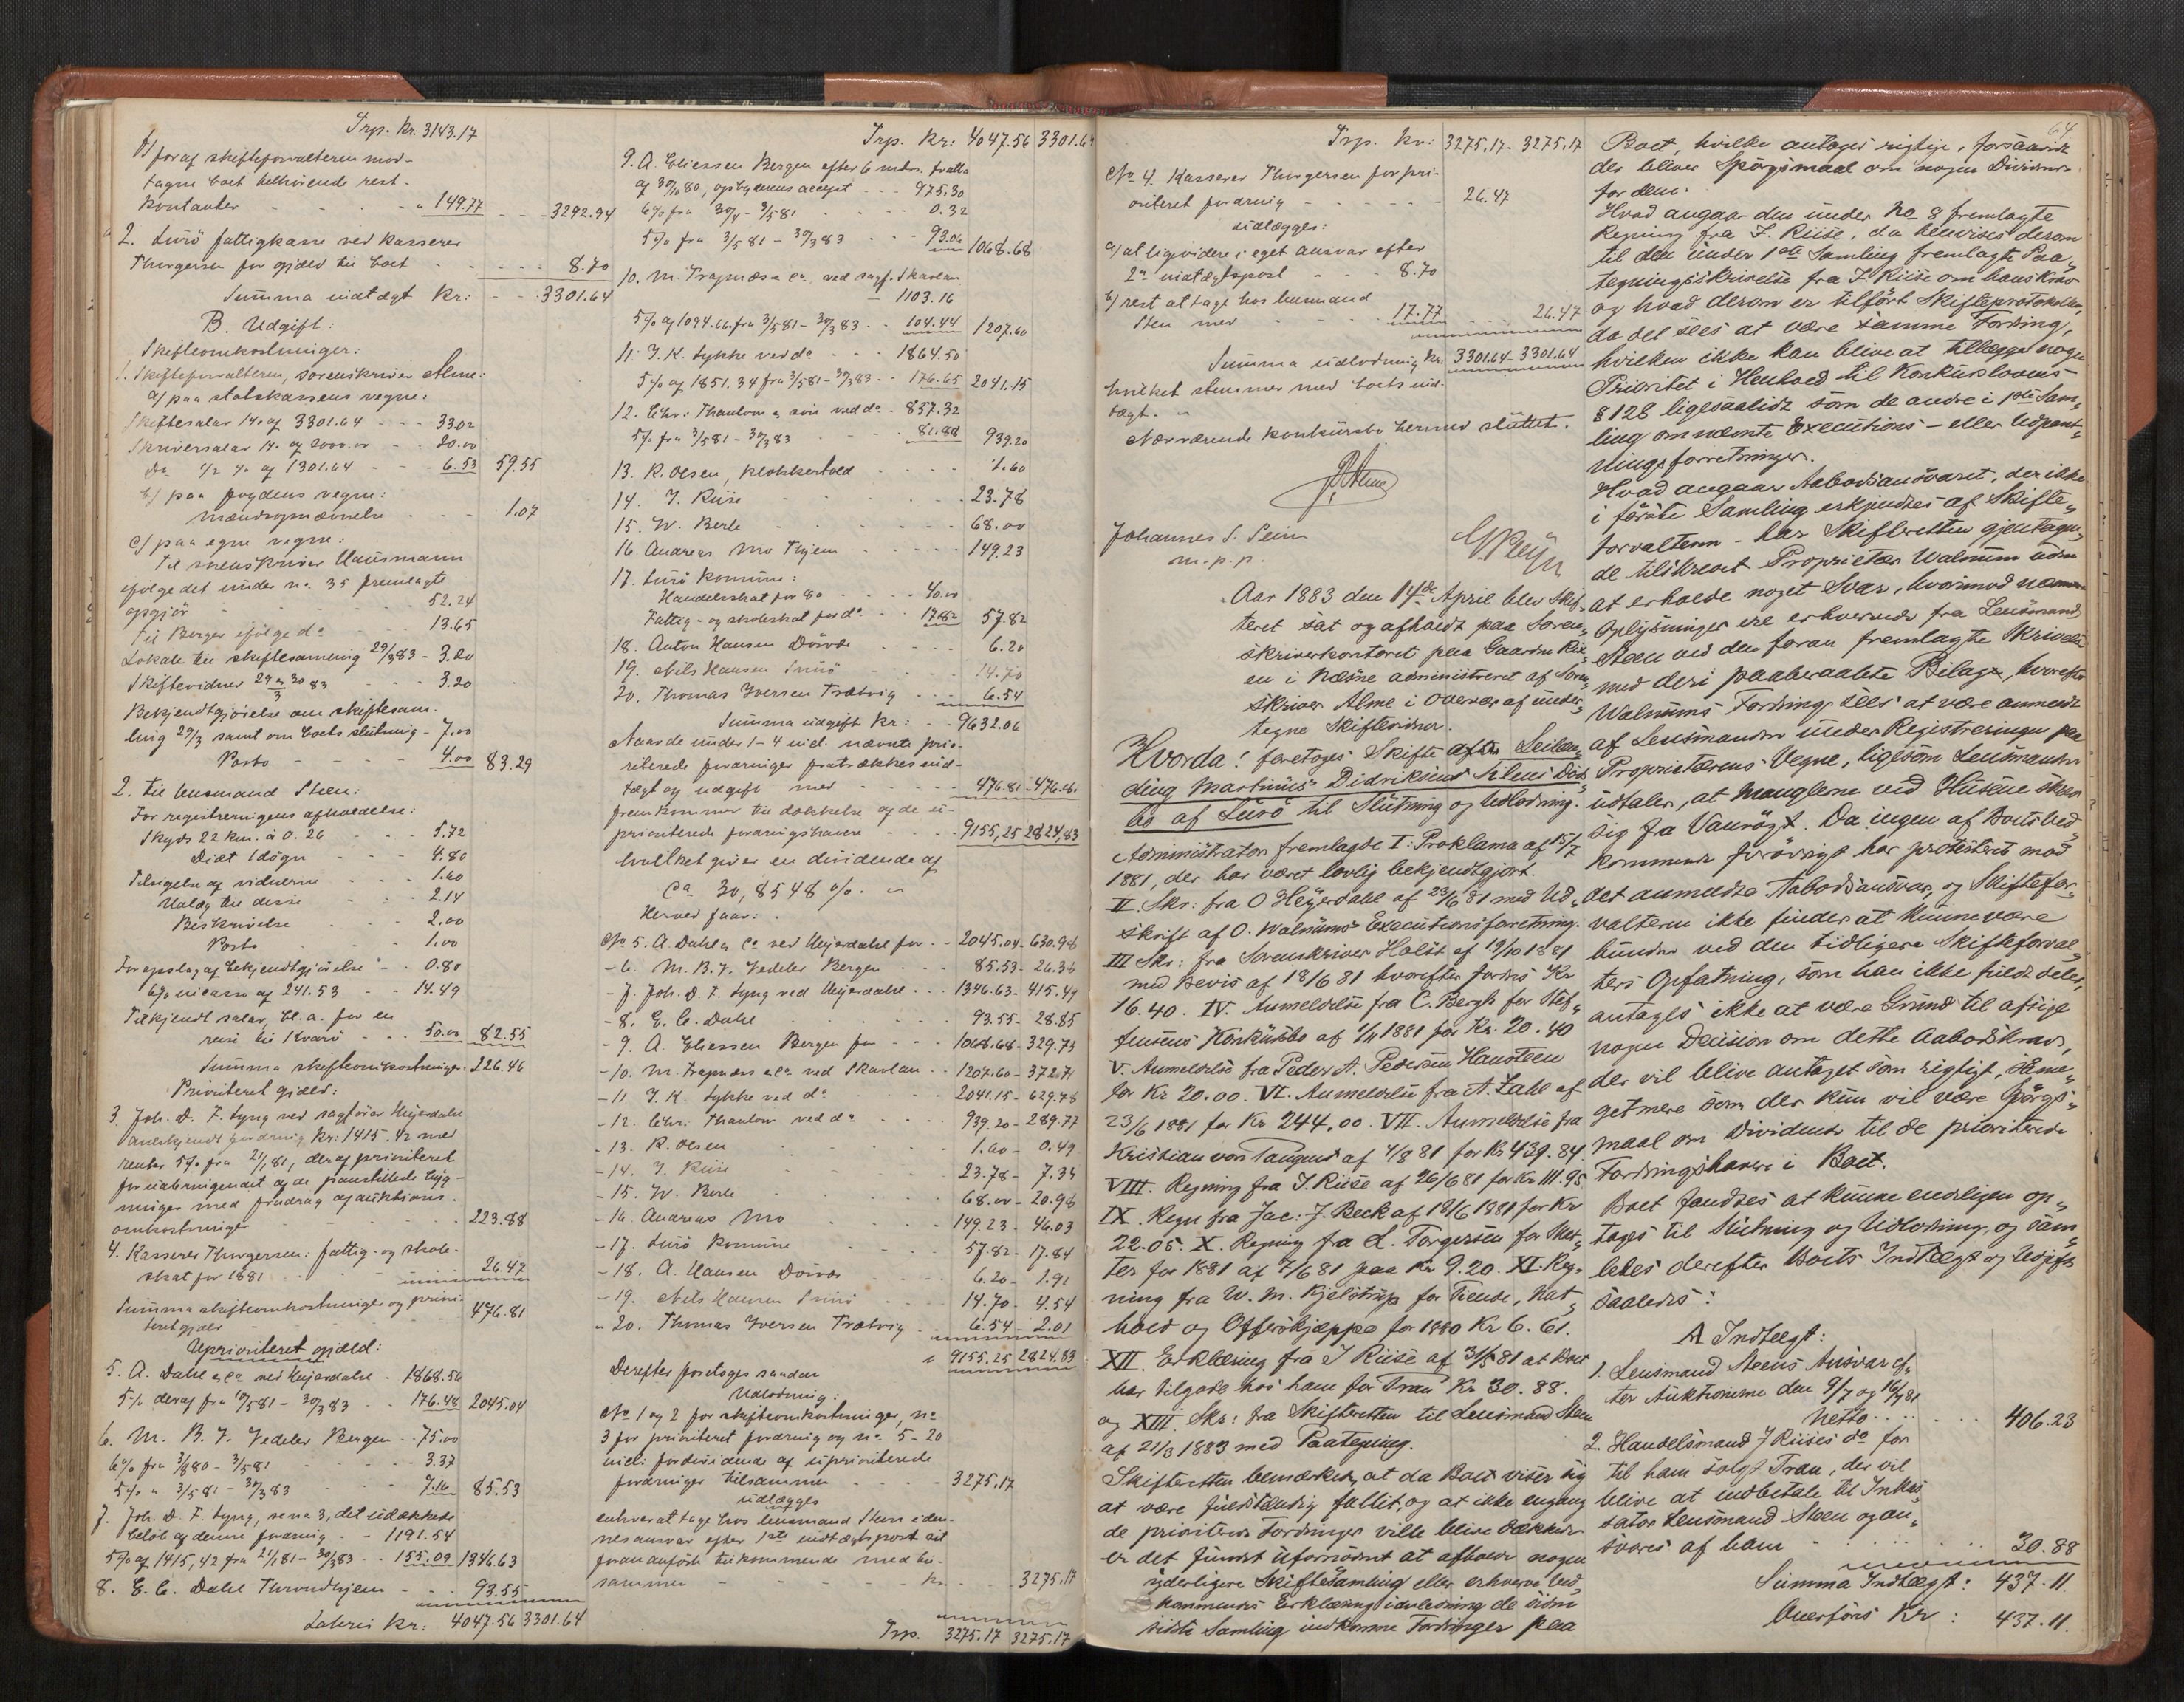 Trp. Kr: 3143.17
b/ for af skifteforvalteren mod-
tagne boet tilhørende rest-
kontanter - - - " 149.77 - - - 3292.94
2. Lurö fattigkasse ved kasserer
Thorgersen for gjæld til boet - - - 8.70
Summa indtægt Kr: - - 3301.64
B. Udgift:
Skifteomkostninger:
1. Skifteforvalteren, sorenskriver Alme:
a/ paa statskassens vegne:
Skiftesalar 1% af 3301.64 - - - 33.02
Skriversalar 1% af 2000.00 - - 20.00
Do 1/2 % af 1301.64 - - - 6.53 59.55
b/ paa fogdens vegne:
mandsopnævnelse - - - 1.07
c/ paa egne vegne:
til sorenskriver Hausmann
ifølge det under no. 35 fremlagte
opgjör - - - 52.24
til Berger ifølge do - - - 13.65
Lokale til skiftesamling 29/3 83 - 3.20
Skiftevidner 29 & 30/3 83 - - - 3.20
Bekjendtgjørelse om skiftesam-
ling 29/3 samt om boets slutning - 7.00
Porto - - - 4.00 83.29
2. til lensmand Steen:
For registreringens afholdelse:
Skyds 22 km. à 0.26 - - 5.72
Diæt 1 døgn - - 4.80
Tilsigelse af vidnerne - - 1.60
Udlæg til disse - - 2.14
Beskrivelse - - 2.00
Porto - - 1.00
For opslag af bekjendtgjørelse - - 0.80
6% incasso af 241.53 - - 14.49
Tilkjendt salar, bl.a. for en
reise til Kvarö - - - 50.00 82.55
Summa skifteomkostninger: 226.46
Prioriteret gjæld:
3. Joh. D. F. Lyng ved sagfører Heyerdahl
anerkjendt fordring kr: 1415.42 med
renter 5% fra 21/1 81, deraf prioriteret
for inbringendet af de pantstillede byg-
ninger med fradrag af auktions-
omkostninger - - - 223.88
4. Kasserer Thorgersen: fattig- og skole-
skat for 1881 - - - 26.47
Summa skifteomkostninger og priori-
teret gjæld - - - 476.81
Uprioriteret gjæld:
5. A. Dahl & Co. ved Heyerdahl - 1868.56
5% deraf fra 10/5 81 - 30/3 83 - - 176.48 2045.04
6. M. B. F. Vedeler Bergen - - 75.00
6% fra 3/8 80 - 3/5 81 - - - 3.37
5% " 3/5 81 - 30/3 83 - - 7.16 85.53
7. Joh. D. F. Lyng, se no 3, det udækkede
beløb af denne fordring - - 1191.54
5% af 1415,42 fra 21/1 81 - 30/3 83 - - 155.09 1346.63
8. E. C. Dahl Throndhjem - - - 93.55
Lateris Kr: 4047.56 3301.64
Trp. Kr: 4047.56 3301.64
9. A. Eliessen Bergen efter 6 mdrs. tratte
af 30/10 80, opsbydens accept - - - 975.30
6% fra 30/4 - 3/5 81 - - - 0.32
5% fra 3/5 81 - 30/3 83 - - 93.06 1068.68
10. M. Trapnæs & Co. ved sagf. Skavlan
- 1103.16
5% af 1094.66 fra 3/5 81 - 30/3 83 - - 104.44 1207.60
11. J. K. Lykke ved do - - - 1864.50
5% af 1851.34 fra 3/5 81 - 30/3 83 - - 176.65 2041.15
12. Chr. Thaulow & søn ved do - 857.32
5% fra 3/5 81 - 30/3 83 - - 81.88 939.20
13. R. Olsen, Klokkertold - - - 1.60
14. J. Riise - - - 23.78
15. W. Berle - - - 68.00
16. Andreas Mo Thjem - - - 149.23
17. Lurö Komune:
Handelsskat for 80 - - - 40.00
Fattig- og skoleskat for do - 17.82 57.82
18. Anton Hansen Dörvær - - - 6.20
19. Nils Hansen Sniö - - - 14.70
20. Thomas Iversen Trætvig - - - 6.54
Summa udgift Kr: - - 9632.06
Naar de under 1-4 incl. nævnte prio-
riterede fordringer fratrækkes ind-
tægt og udgift med - - - 476.81 - 476.81
fremkommer til dækkelse af de u-
prioriterede fordringshavere - - - 9155,25 2824,83
hvilket giver en dividende af
Ca 30,8548 %.
Herved faar:
No 5. A. Dahl & Co ved Heyerdahl for - - 2045.04 - 630.98
- 6. M. B. F. Vedeler Bergen - - 85.53 - 26.38
- 7. Joh. D. F. Lyng ved Heyerdahl - - - 1346.63 - 415.49
- 8. E. C. Dahl - - - 93.55 - 28.85
- 9. A. Eliessen Bergen for - - - 1068.68 - 329.73
- 10. M. Trapnæs & Co ved Skavlan - - 1207.60 - 372.71
- 11. J. K. Lykke ved do - - 2041.15 - 629.78
- 12. Chr. Thaulow ved do - - - 939.20 - 289.77
- 13. R. Olsen - - - 1.60 - 0.49
- 14. J. Riise - - - 23.78 - 7.34
- 15. W. Berle - - - 68.00 - 20.98
- 16. Andreas Mo - - - 149.23 - 46.03
- 17. Lurö Komune - - - 57.82 - 17.84
- 18. A. Hansen Dörvær - - - 6.20 - 1.91
- 19. Nils Hansen Sniö - - - 14.70 - 4.54
" 20. Thomas Iversen Trætvig - 6.54 - 2.01
9155.25 2824.83
Derefter foretoges saadan
Udlodning:
No 1 og 2 for skifteomkostninger, no
3 for prioriteret fordring og no 5-20
incl: for dividende af uprioriterede
fordringer tilsammen - - - 3275.17
udlægges
enhver at tage hos lensmand Steen i den-
nes ansvar efter 1ste indtægtspost sit
foran anförte tilkommende med til-
sammen - - - Kr. - 3275.17
Trp. 3275.17 3275.17
Trp. Kr: 3275.17 - 3275.17
No 4. Kasserer Thorgersen for pri-
oriteret fordring - - - 26.47
udlægges:
a/ at liqvidere i eget ansvar efter
2den indtægtspost - - - 8.70
b/ rest at tage hos lensmand
Sten med - - - 17.77 - - 26.47
Summa udlodning Kr. 3301.64 - 3301.64
hvilket stemmer med boets ind-
tægt. -
Nærværende konkursbo hermed sluttet.
Alme
Johannes S. Seim
m.p.p.
Aar 1883 den 14de April blev Skif-
teret sat og afholdt paa Soren-
skriverkontoret paa Gaarden Rix-
en i Næsne administreret af Soren-
skriver Alme i Overvær af under-
tegne Skiftevidner.
Hvorda! foretoges Skifte efter Leilæn-
ding Martinus Didriksens Döds-
bo af Lurö til Slutning og Udlodning.
Administrator fremlagde I: Proklama af 15/7
1881, der har været lovlig bekjendtgjort.
II. Skr: fra O Heyerdahl af 23/6 81 med Ud-
skrift af O. Walnums Executionsforretning.
III Skr: fra Sorenskriver Holst af 19/10 1881
med Bevis af 18/6 81 hvorefter fordres Kr
16.40. IV. Anmeldelse fra C. Bergh for Stef-
fensens Konkursbo af 1/11 1881 for Kr. 20.40
V. Anmeldelse fra Peder A. Pedersen Hansteen
for Kr 20.00. VI. Anmeldelse fra A. Zahl af
23/6 1881 for Kr 244,00. VII. Anmeldelse fra
Kristian von Tangend af 4/8 81 for Kr 439.84
VIII. Regning fra J. Riise af 26/6 81 for Kr 111.95
IX. Regn fra Jac: J. Beck af 18/6 1881 for Kr
22.05. X. Regning fra L. Torgersen for Skat-
ter for 1881 af 7/6 81 paa Kr 9.20. XI. Reg-
ning fra W. M. Kjelstrup for Tiende, Nat-
hold og Offerskjæppe for 1880 Kr 6.61.
XII. Erklæring fra J Riise af 31/5 81 at Boet
har tilgode hos ham for Tran Kr 30.88.
og XIII. Skr: fra Skifteretten til Lensmand Steen
af 21/3 1883 med Paategning.
Skifteretten bemærker, at da Boet viser sig
at være fuldstændig fallit, og at ikke engang
de prioriterede Fordringer ville blive dækkede
er det fundet ufornødent at afholde nogen
yderligere Skiftesamling eller erhverve Ved-
kommendes Erklæring i anledning de siden
sidste Samling indkomne Fordringer paa
64
Boet, hvilke antages rigtige, forsaavidt
der bliver Spörgsmaal om nogen Dividende
for dem.
Hvad angaar den under No 8 fremlagte
Regning fra J. Riise, da henvises derom
til den under 1ste Samling fremlagte Paa-
tegningsskrivelse fra J. Riise om hans Krav
og hvad derom er tilfört Skifteprotokollen,
da det sees at være samme Fordring,
hvilken ikke kan blive at tillægge nogen
Prioritet i Henhold til Konkurslovens
§ 128 ligesaalidt som de andre i 1ste Sam-
ling omnævnte Executions- eller Udpant-
ningsforretninger.
Hvad angaar Aabodsansvaret, der ikke
i förste Samling erkjendtes af Skifte-
forvalteren - har Skifteretten gjentagen-
de tilskrevet Proprietær Walnum uden
at erholde noget Svar, hvorimod
Oplysninger ere erhvervede fra Lensmand
Steen ved den foran fremlagte Skrivelse
med deri paaberaabte Bilage, hvorefter
Walnums Fordring sees at være anmeldt
af Lensmanden under Registreringen paa
Proprietærens Vegne, ligesom Lensmanden
udtaler, at Manglerne ved Husene skrev
sig fra Vanrögt. Da ingen af Boets Ved-
kommende forövrigt har protesteret mod
det anmeldte Aabodsansvar, og Skiftefor-
valteren ikke finder at kunne være
bunden ved den tidligere Skifteforval-
ters Opfatning, som han ikke fuldt deler,
antages ikke at være Grund til afsige
nogen Decision om dette Aabodskrav,
der vil blive antaget som rigtigt, saame-
get mere som der kun vil være Spörgs-
maal om Dividende til de prioriterede
Fordringshavere i Boet.
Boet fandtes at kunne endeligen op-
tages til Slutning og Udlodning, og saa-
ledes derefter Boets Indtægt og Udgift
saaledes:
A Indtægt:
1. Lensmand Steens Ansvar ef-
ter Auktionerne den 9/7 og 16/9 81
Netto - - - 406.23
2. Handelsmand J Riises do for
til ham solgt Tran, der vil
blive at indbetale til Inkas-
sator Lensmand Steen og an-
svares af ham - - - 30.88
Summa Indtægt: 437.11.
Overföres Kr: 437.11.